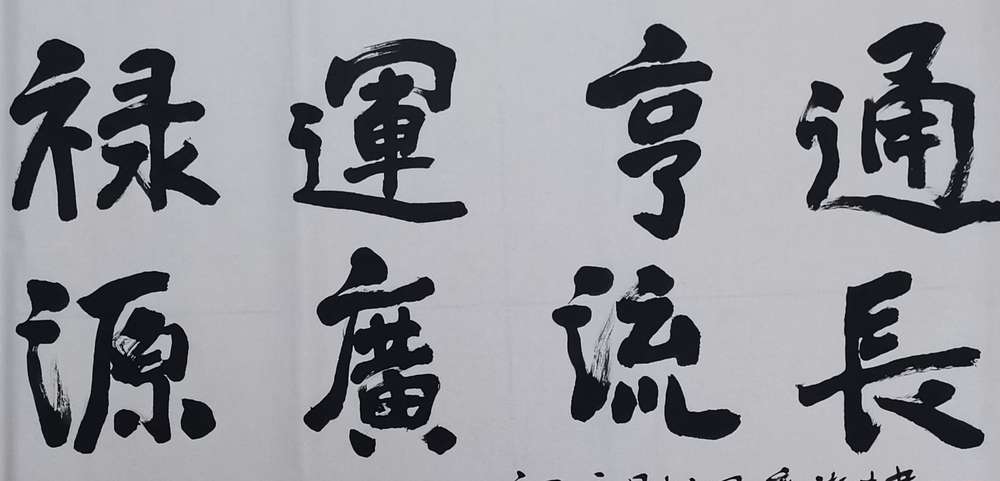 禄運亨通
源廣流長